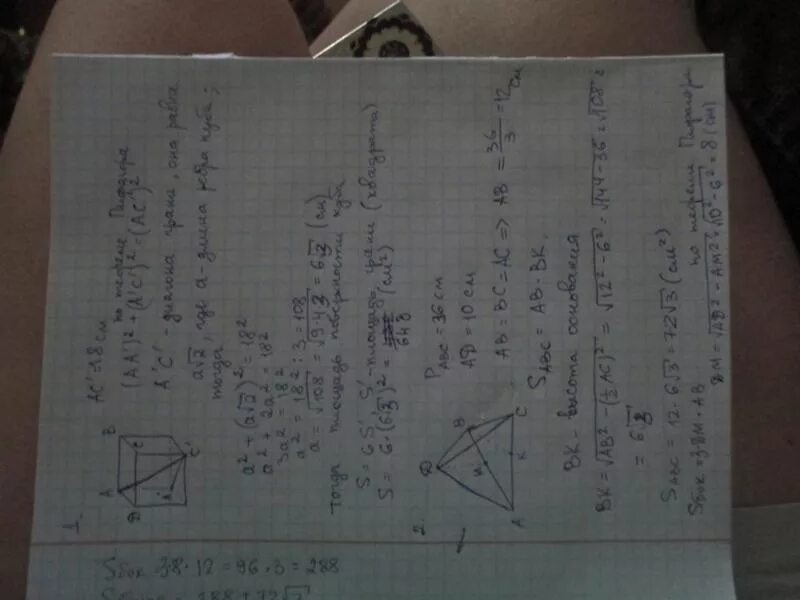 1.
A B
D C
A' C'
AC' = 18 см
по теореме Пифагора
(AA')² + (A'C')² = (AC')²
A'C' - диагона грани, она равна
a√2, где a - длина ребра куба;
тогда
a² + (a√2)² = 18²
a² + 2a² = 18²
3a² = 18²
a² = 18² : 3 = 108
a = √108 = √9·4·3 = 6√3 (см)
тогда площадь поверхности куба
S = 6S' S' - площадь грани (квадрата)
S = 6·(6√3)² = 648 (см²)
2.
D
B
M
A K C
P ABC = 36 см
AD = 10 см
AB = BC = AC => AB = 36/3 = 12 см
S ABC = AB · BK.
BK - высота основания
BK = √AB² - (½AC)² = √12² - 6² = √144 - 36 = √108 =
= 6√3
S ABC = 12 · 6√3 = 72√3 (см²)
Sбок = 3·DM · AB по теореме Пифагора
DM = √AD² - AM² = √10² - 6² = 8 (см)
Sбок 3·8 · 12 = 96 · 3 = 288